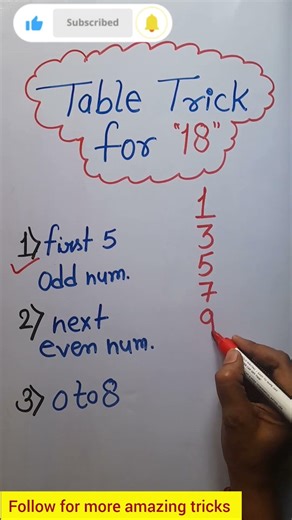 Subscribed
Table Trick
for "18"
1) first 5
odd num.
2) next
even num.
3) 0 to 8
1
3
5
7
9
Follow for more amazing tricks